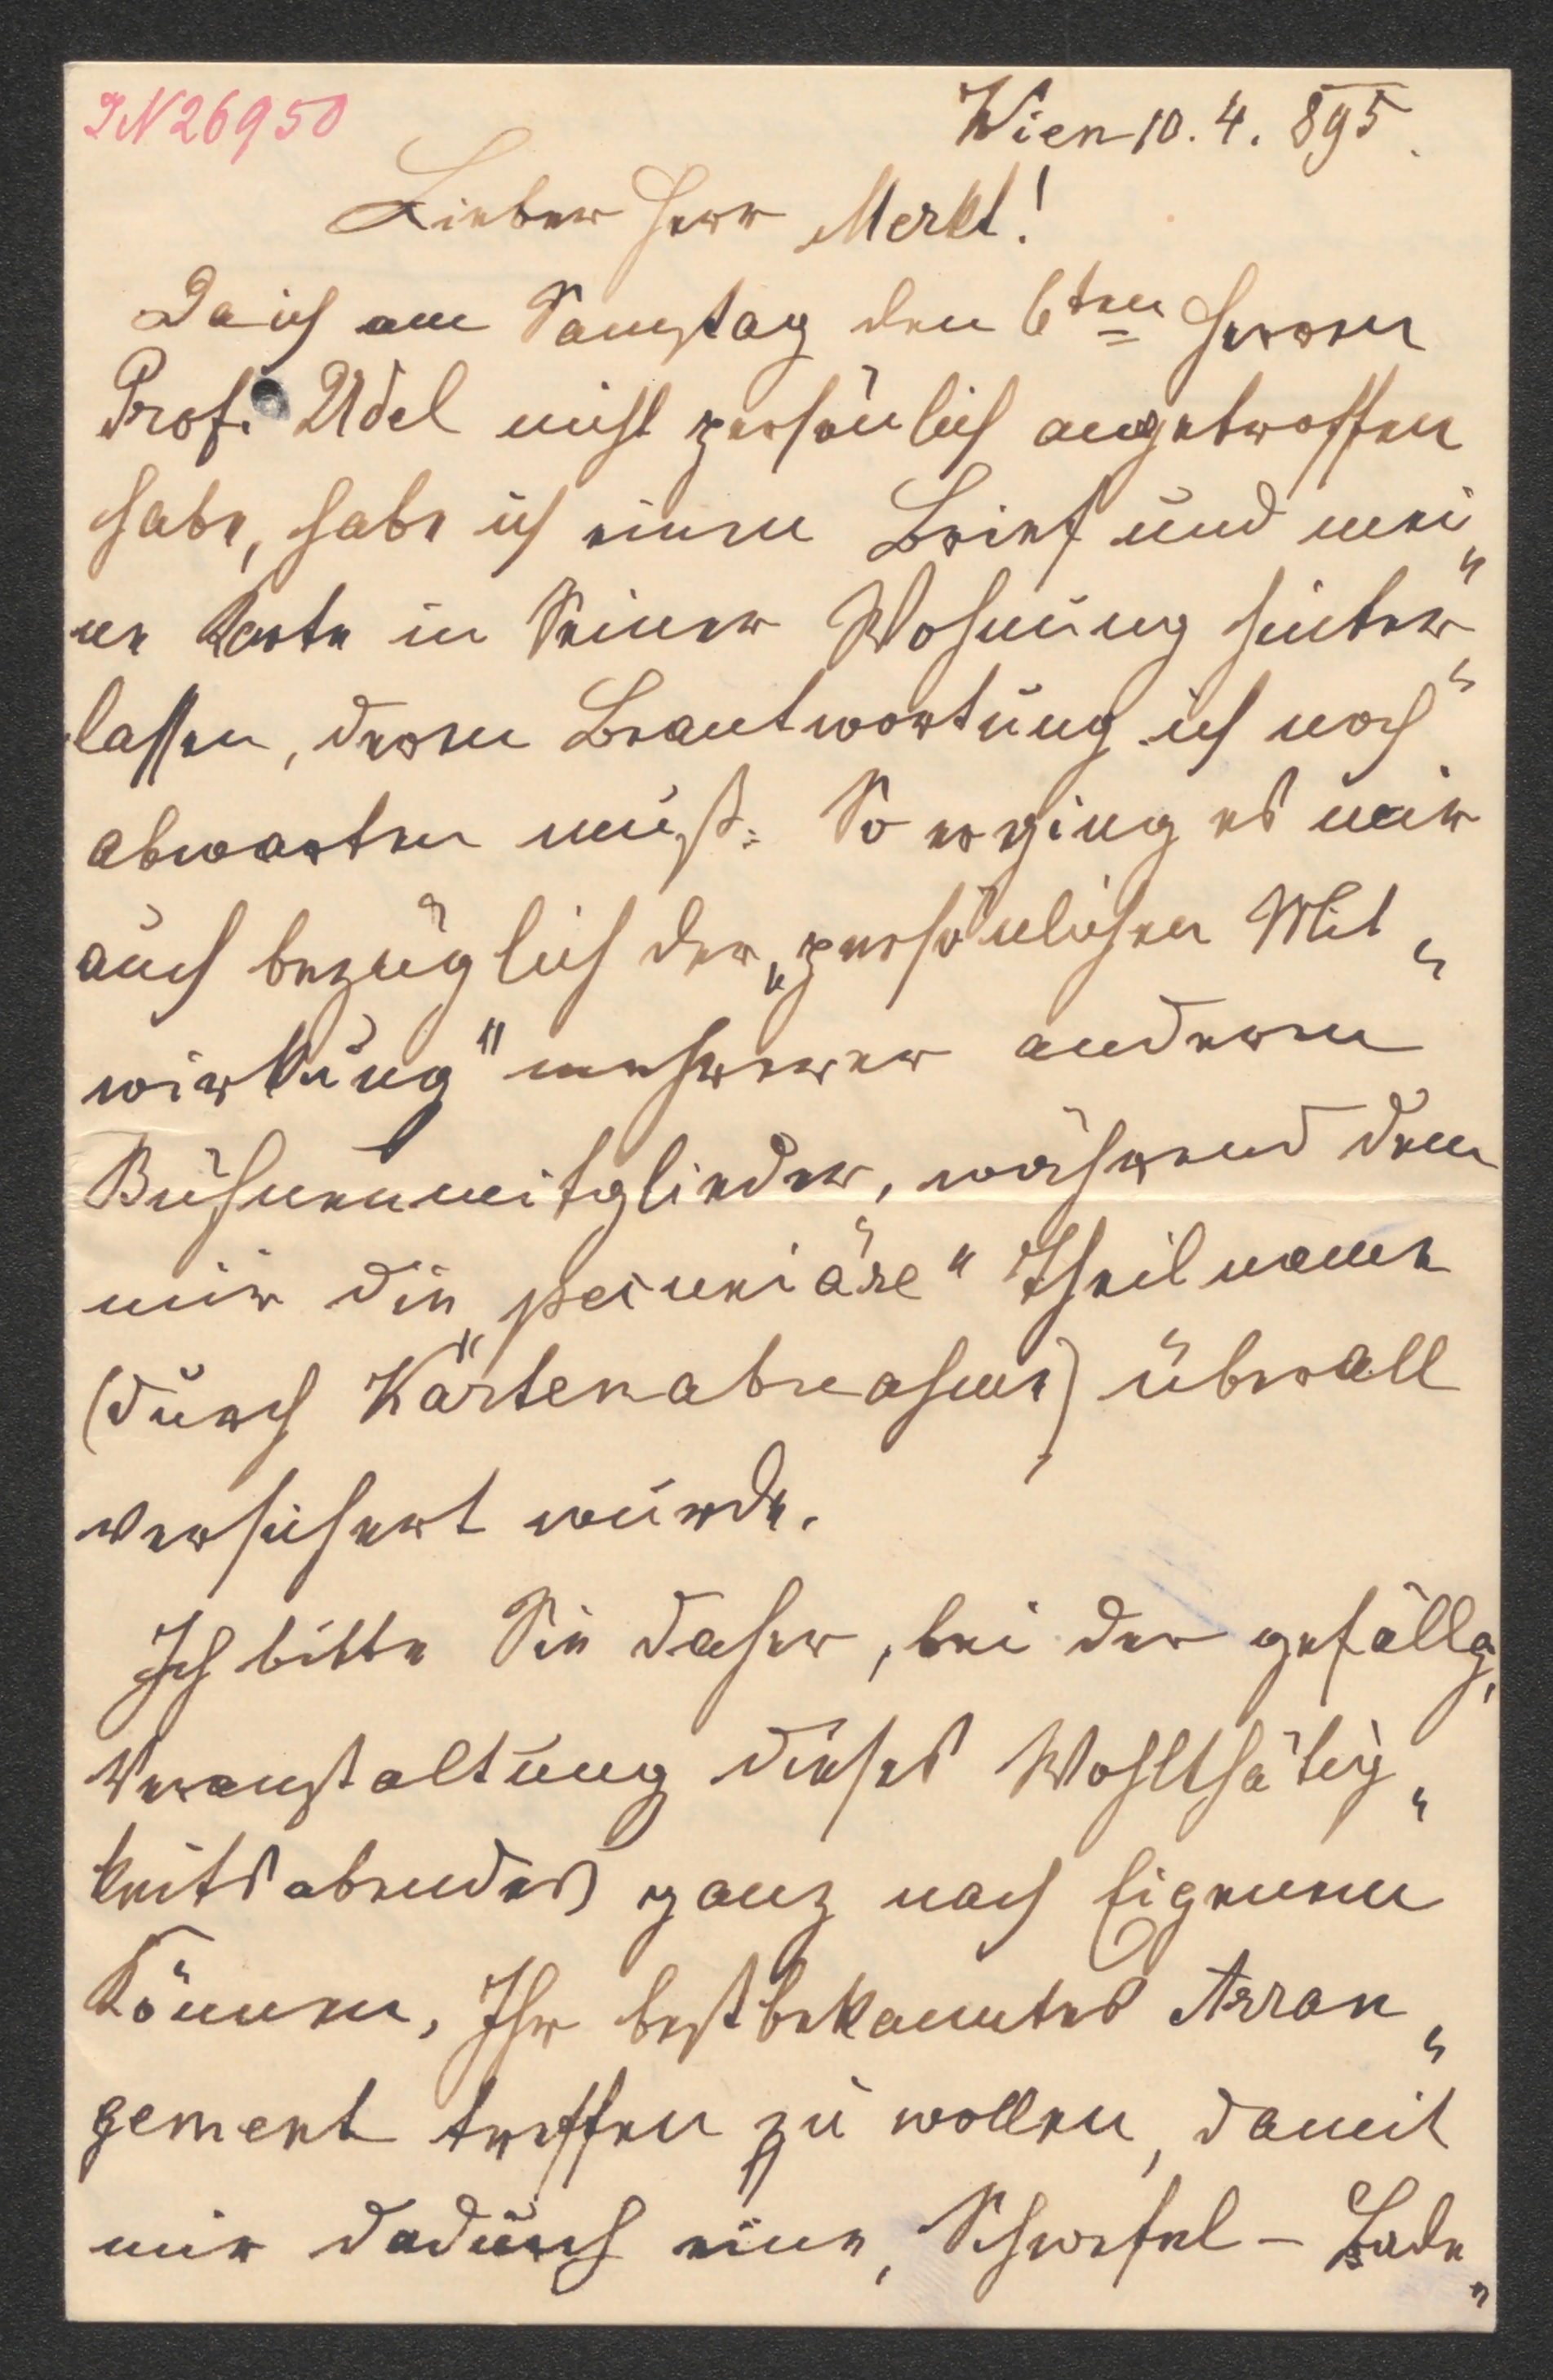 IN 26950
Wien 10. 4. 895.
Lieber Herr Merkt!
Da ich am Samstag den 6ten Herren
Prof. Udel nicht persönlich angetroffen
habe, habe ich einen Brief und mei„
ne Karte in Seiner Wohnung hinter„
lassen, deren Beantwortung ich noch
abwarten muß. So erging es mir
auch bezüglich der „persönlichen Mit„
wirkung" mehrerer anderen
Bühnenmitglieder, während dem
mir die „pecuniäre" Theilname
(durch Kartenabnahme) überall
versichert wurde.
Ich bitte Sie daher, bei der gefällg.
Veranstaltung dieses Wohlthätig„
keitsabendes ganz nach Eigenem
Können, Ihr bestbekanntes Arran„
gement treffen zu wollen, damit
mir dadurch eine, Schwefel-Bade„